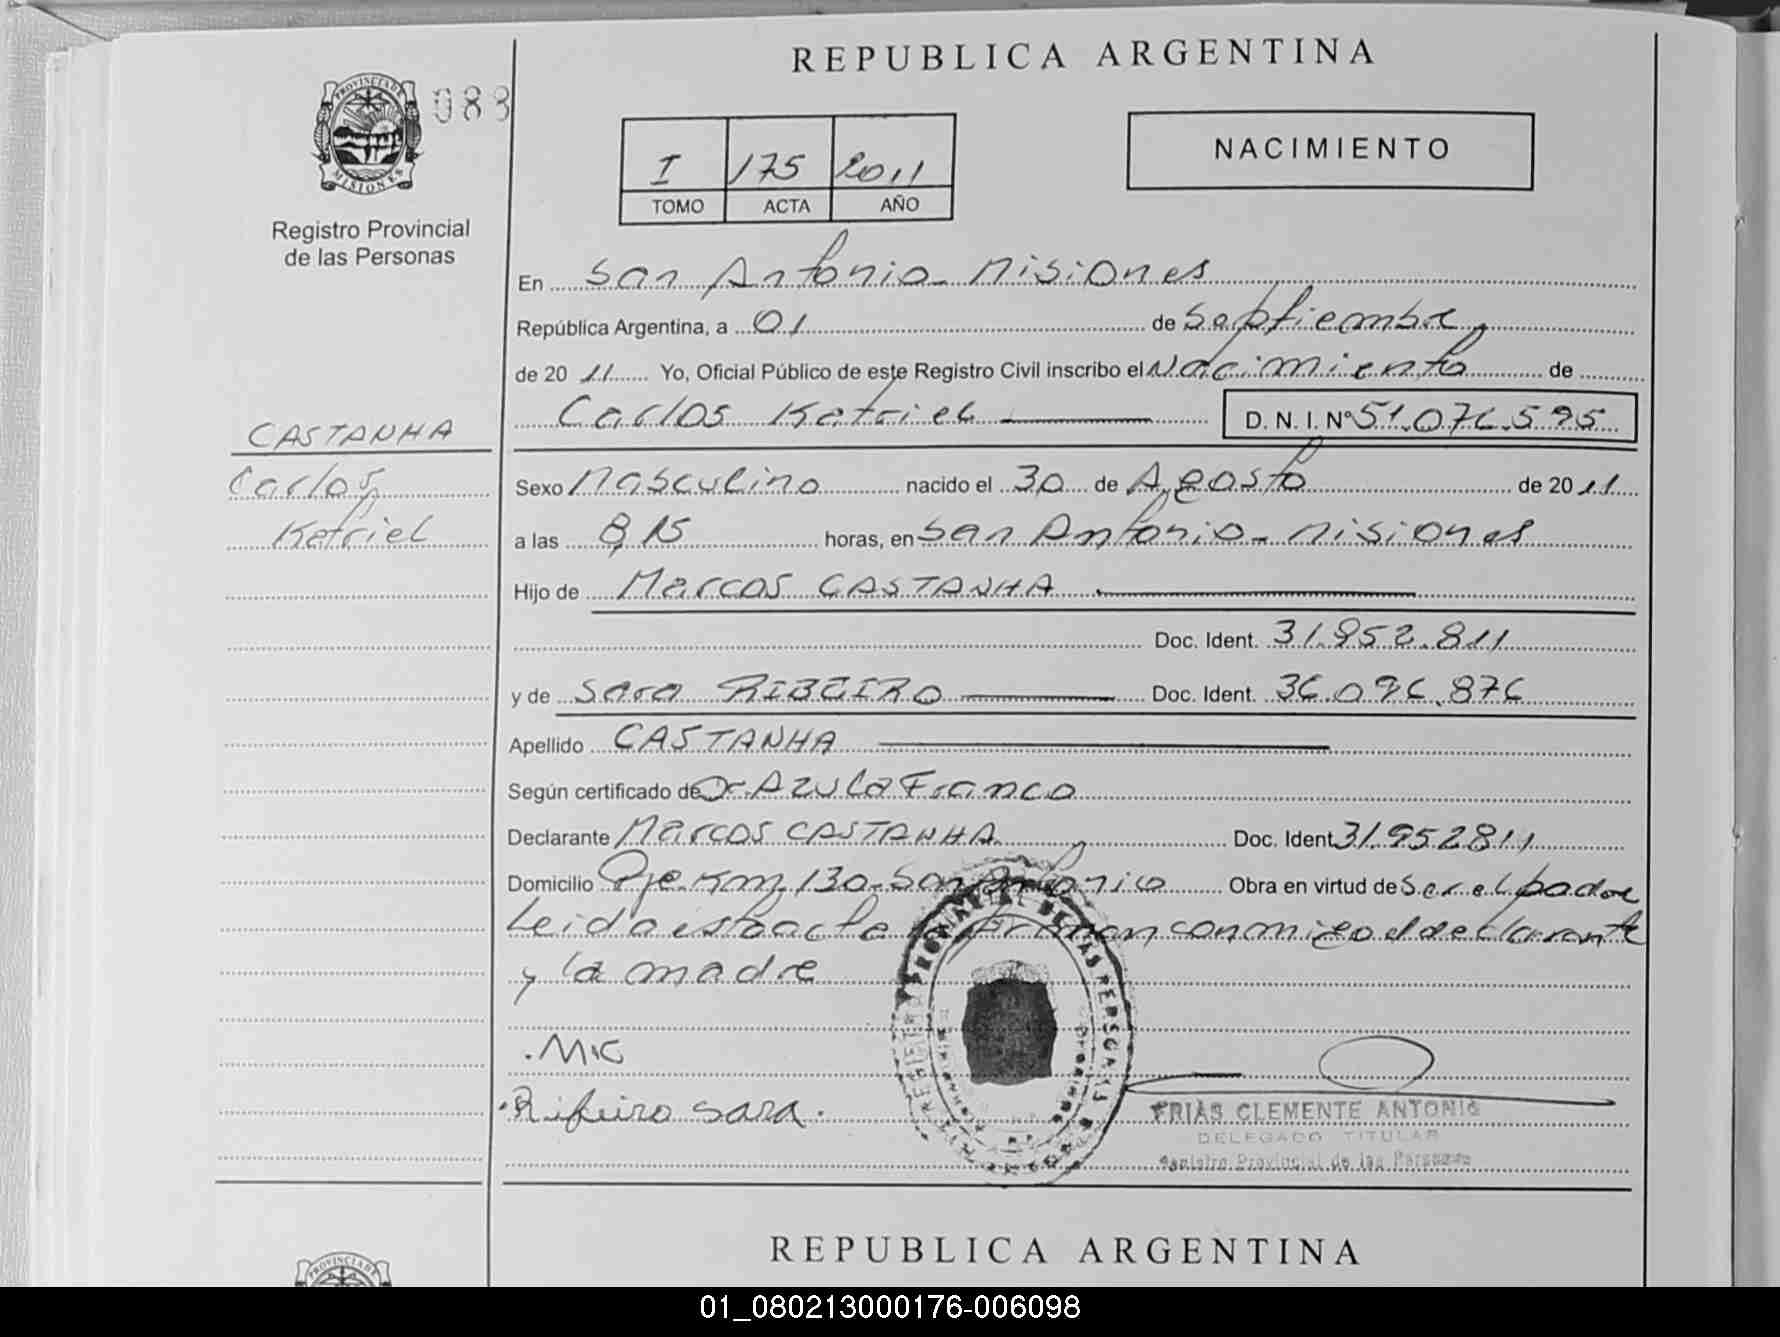 REPUBLICA ARGENTINA
PROVINCIA DE MISIONES
088
Registro Provincial
de las Personas
I 175 2011
TOMO ACTA AÑO
NACIMIENTO
En San Antonio - Misiones
República Argentina, a 01 de Septiembre
de 2011 Yo, Oficial Público de este Registro Civil inscribo el Nacimiento de
Carlos Ketriel D. N. I. Nº 51.076.595
CASTANHA
Carlos
Ketriel
Sexo Masculino nacido el 30 de Agosto de 2011
a las 8,15 horas, en San Antonio - Misiones
Hijo de Marcos CASTANHA
Doc. Ident. 31.952.811
y de Sara RIBEIRO Doc. Ident. 36.096.876
Apellido CASTANHA
Según certificado de Dr. Azula Franco
Declarante Marcos CASTANHA Doc. Ident. 31.952811
Domicilio Pje. Km. 130 - San Antonio Obra en virtud de ser el padre
Leida esta acta la firman conmigo el declarante
y la madre
MC
Ribeiro Sara.
FRIAS CLEMENTE ANTONIO
DELEGADO TITULAR
Registro Provincial de las Personas
REPUBLICA ARGENTINA
PROVINCIA DE
01_080213000176-006098